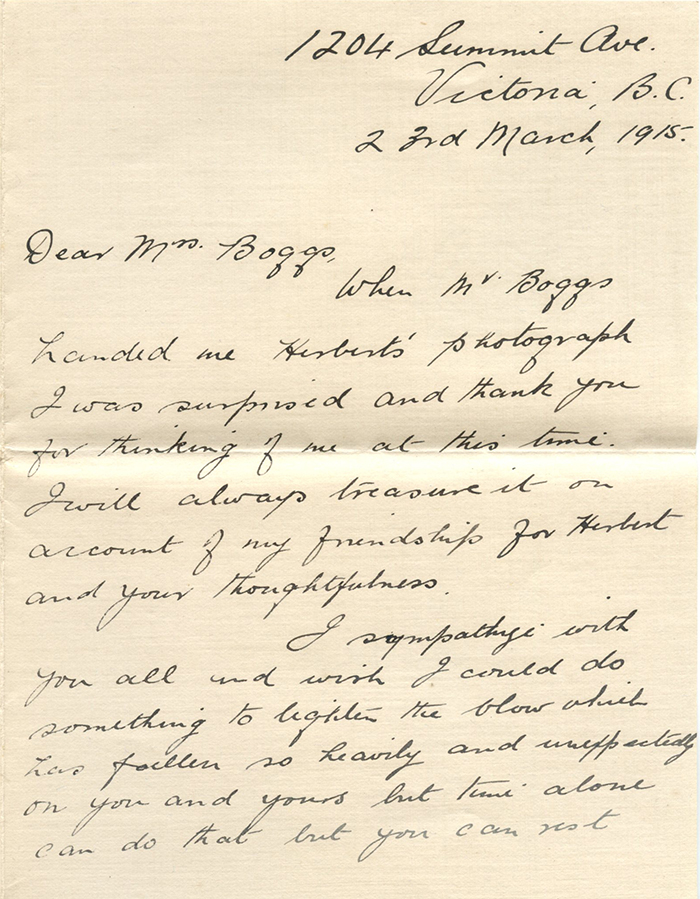 1204 Summit Ave.
Victoria, B.C.
23rd March, 1915.
Dear Mrs. Boggs,
When Mr Boggs
handed me Herbert's photograph
I was surprised and thank you
for thinking of me at this time.
I will always treasure it on
account of my friendship for Herbert
and your thoughtfulness.
I sympathize with
you all and wish I could do
something to lighten the blow which
has fallen so heavily and unexpectedly
on you and yours but time alone
can do that but you can rest